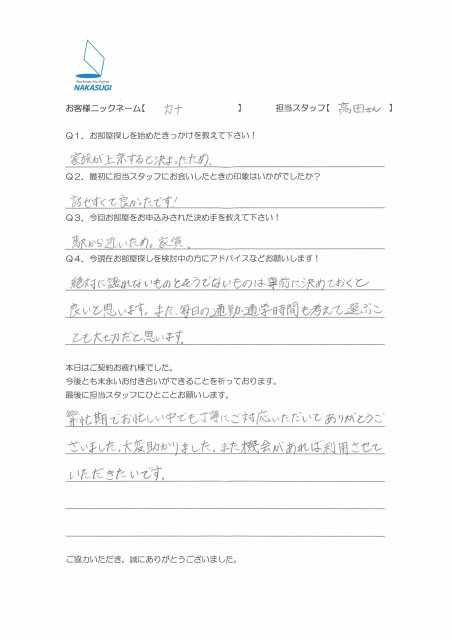 NAKASUGI
お客様ニックネーム【 カナ 】 担当スタッフ【 高田さん 】
Q1．お部屋探しを始めたきっかけを教えて下さい！
家族が上京すると決まったため。
Q2．最初に担当スタッフにお会いしたときの印象はいかがでしたか？
話せやすくて良かったです！
Q3．今回お部屋をお申込みされた決め手を教えて下さい！
駅から近いため。家賃。
Q4．今現在お部屋探しを検討中の方にアドバイスなどお願いします！
絶対に譲れないものとそうでないものは事前に決めておくと
良いと思います。また、毎日の通勤・通学時間も考えて選ぶこ
とも大切だと思います。
本日はご契約お疲れ様でした。
今後とも末永いお付き合いができることを祈っております。
最後に担当スタッフにひとことお願いします。
繁忙期でお忙しい中でも丁寧にご対応いただいてありがとうご
ざいました。大変助かりました。また機会があれば利用させて
いただきたいです。
ご協力いただき、誠にありがとうございました。